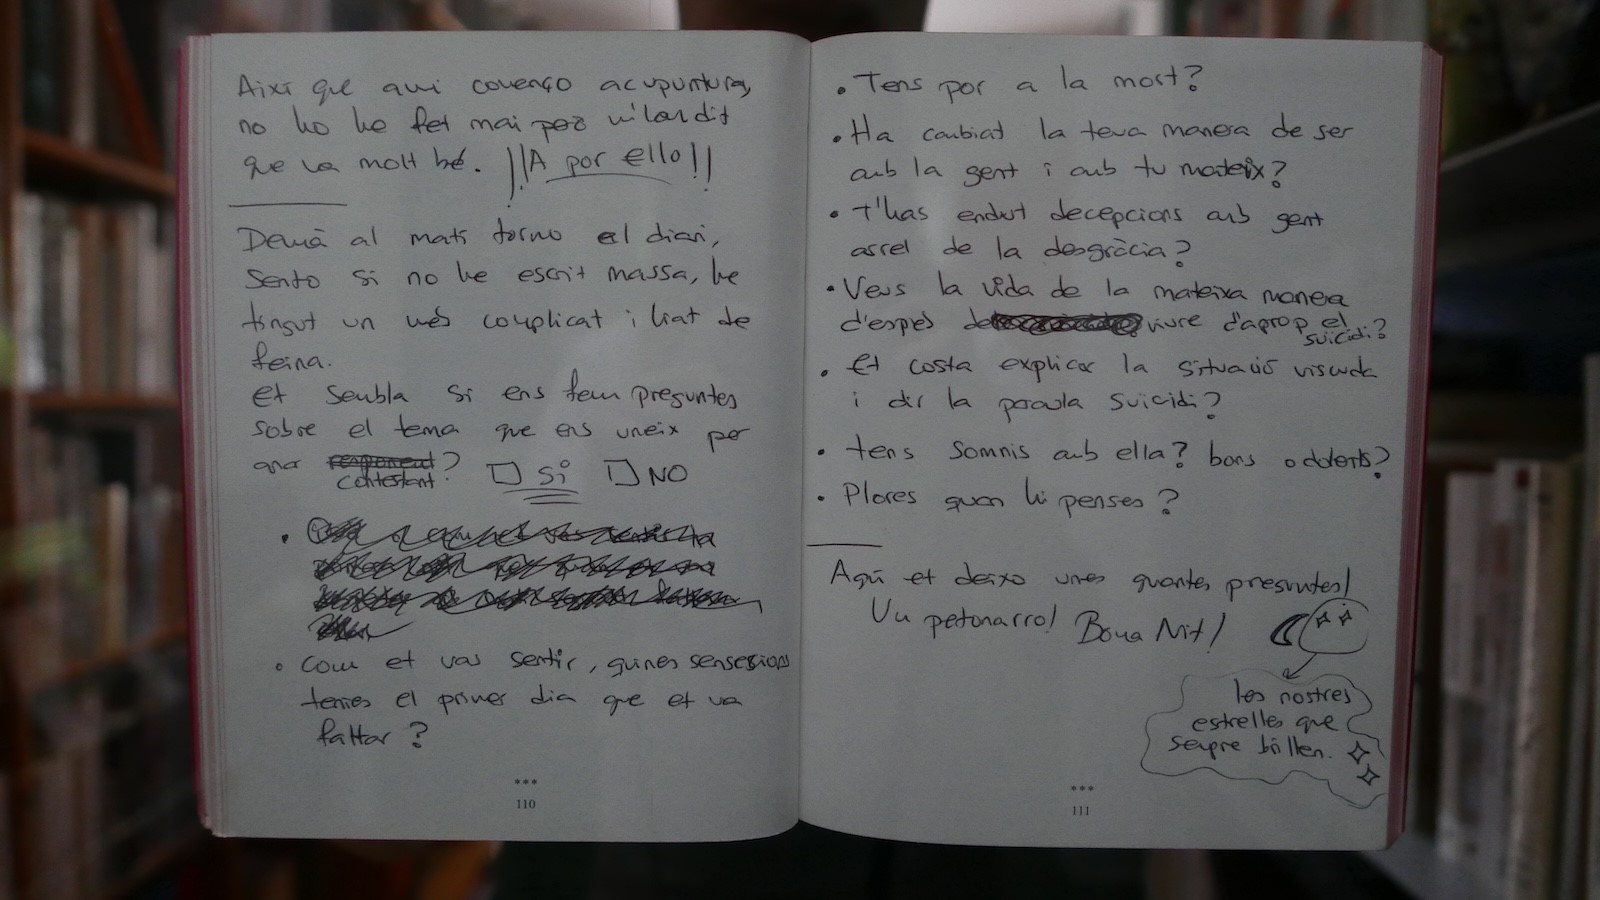 Així que avui començo acupuntura,
no ho he fet mai però m'han dit
que va molt bé. ¡¡A por ello!!
Demà al matí torno el diari,
sento si no he escrit massa, he
tingut un més complicat i liat de
feina.
Et sembla si ens fem preguntes
sobre el tema que ens uneix per
anar contestant? Sí NO
• Com et vas sentir, quines sensacions
tenies el primer dia que et va
faltar?
110
• Tens por a la mort?
• Ha canbiat la teva manera de ser
amb la gent i amb tu mateix?
• T'has endut decepcions amb gent
arrel de la desgràcia?
• Veus la vida de la mateixa manera
d'espés de viure d'aprop el
suicidi?
• Et costa explicar la situació viscuda
i dir la paraula suicidi?
• Tens somnis amb ella? bons o dolents?
• Plores quan hi penses?
Aquí et deixo unes quantes preguntes!
Un petonarro! Bona Nit!
Les nostres
estrelles que
sempre brillen.
111